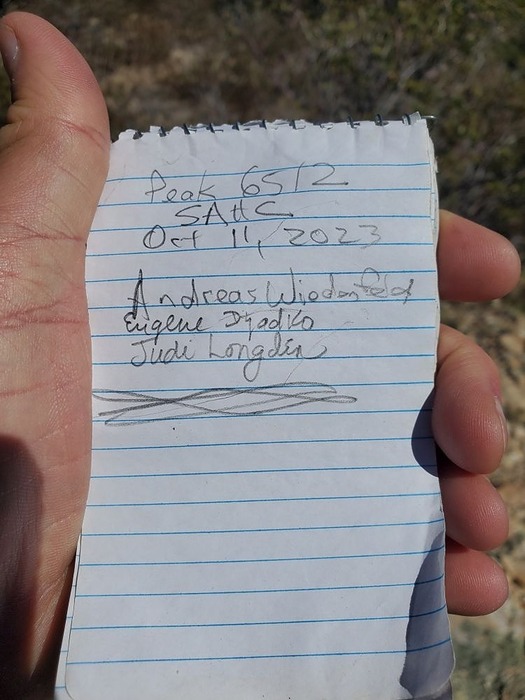 Peak 6512
SAHC
Oct 11, 2023
Andreas Wiedenfeld
Eugene Djadko
Judi Longden